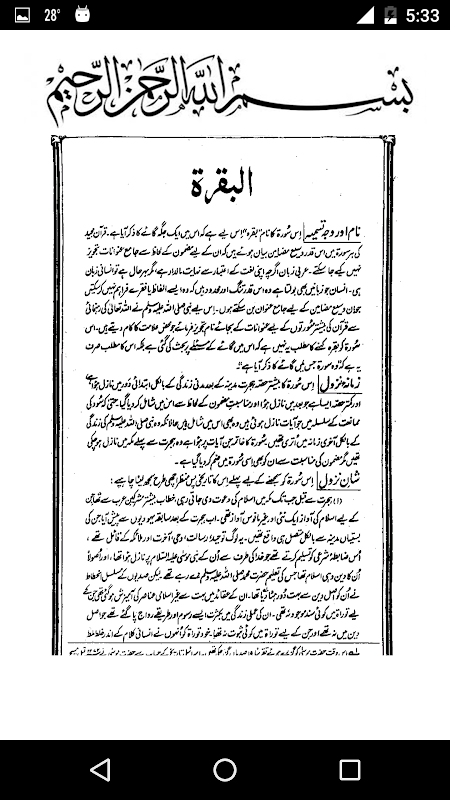 28° 5:33
بسم الله الرحمن الرحيم
البقرة
نام اور وجہ تسمیہ اِس سُورۃ کا نام "بقرہ" اِس لیے ہے کہ اس میں ایک جگہ گائے کا ذکر آیا ہے۔ قرآن مجید
کی ہر سورۃ میں اس قدر وسیع مضامین بیان ہوئے ہیں کہ ان کے لیے مضمون کے لحاظ سے جامع عنوانات تجویز
نہیں کیے جا سکتے۔ عربی زبان اگرچہ اپنی لغت کے اعتبار سے نہایت مالدار ہے، مگر بہرحال ہے تو انسانی زبان
ہی۔ انسان جو زبانیں بھی بولتا ہے وہ اس قدر تنگ اور محدود ہیں کہ وہ ایسے الفاظ یا فقرے فراہم نہیں کر سکتیں
جو ان وسیع مضامین کے لیے جامع عنوان بن سکتے ہوں۔ اس لیے نبی صلی اللہ علیہ وسلم نے اللہ تعالیٰ کی رہنمائی
سے قرآن کی بیشتر سُورتوں کے لیے عنوانات کے بجائے نام تجویز فرمائے جو محض علامت کا کام دیتے ہیں۔ اس
سورۃ کو بقرہ کہنے کا مطلب یہ نہیں ہے کہ اس میں گائے کے مسئلے پر بحث کی گئی ہے بلکہ اس کا مطلب صرف
یہ ہے کہ "وہ سورۃ جس میں گائے کا ذکر آیا ہے"۔
زمانۂ نزول اِس سُورۃ کا بیشتر حصہ ہجرت مدینہ کے بعد مدنی زندگی کے بالکل ابتدائی دَور میں نازل ہوا ہے
اور کمتر حصہ ایسا ہے جو بعد میں نازل ہوا اور مناسبتِ مضمون کے لحاظ سے اس میں شامل کر دیا گیا حتیٰ کہ سُود کی
ممانعت کے سلسلہ میں جو آیات نازل ہوئی ہیں وہ بھی اس میں شامل ہیں حالانکہ وہ نبی صلی اللہ علیہ وسلم کی زندگی
کے بالکل آخری زمانہ میں اُتری تھیں۔ سُورۃ کا خاتمہ جن آیات پر ہوا ہے وہ ہجرت سے پہلے مکہ میں نازل ہو چکی
تھیں مگر مضمون کی مناسبت سے ان کو بھی اِسی سُورۃ میں ضم کر دیا گیا ہے۔
شانِ نزول اِس سُورۃ کو سمجھنے کے لیے پہلے اس کا تاریخی پس منظر اچھی طرح سمجھ لینا چاہیے:
(۱) ہجرت سے قبل جب تک مکہ میں اسلام کی دعوت دی جاتی رہی، خطاب بیشتر مشرکینِ عرب سے تھا جن
کے لیے اسلام کی آواز ایک نئی اور غیر مانوس آواز تھی۔ اب ہجرت کے بعد سابقہ یہودیوں سے پیش آیا جن کی
بستیاں مدینہ سے بالکل متصل ہی واقع تھیں۔ یہ لوگ توحید، رسالت، وحی، آخرت اور ملائکہ کے قائل تھے،
اُس ضابطۂ شرعی کو تسلیم کرتے تھے جو خدا کی طرف سے اُن کے نبی موسیٰ علیہ السلام پر نازل ہوا تھا، اور اُصولاً
اُن کا دین وہی اسلام تھا جس کی تعلیم حضرت محمد صلی اللہ علیہ وسلم دے رہے تھے۔ لیکن صدیوں کے مسلسل انحطاط
نے اُن کو اصل دین سے بہت دُور ہٹا دیا تھا۔ ان کے عقائد میں بہت سے غیر اسلامی عناصر کی آمیزش ہو گئی تھی جن کے
لیے توراۃ میں کوئی سند موجود نہ تھی۔ ان کی عملی زندگی میں بکثرت ایسے رسوم اور طریقے رواج پا گئے تھے جو اصل
دین میں نہ تھے اور جن کے لیے توراۃ میں کوئی ثبوت نہ تھا۔ خود توراۃ کو اُنھوں نے انسانی کلام کے اندر خلط ملط